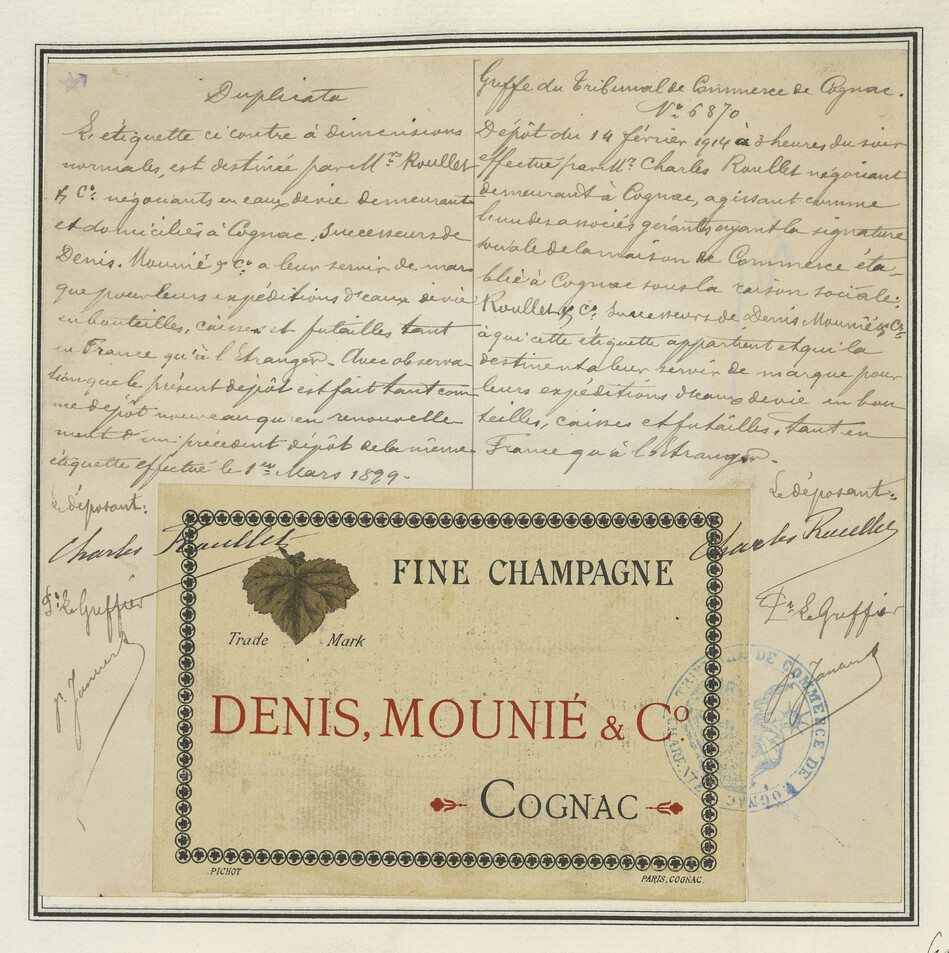 Duplicata
L'étiquette ci contre à dimensions
normales, est destinée par Mrs Roullet
& Cie négociants en eaux de vie demeurant
et domiciliés à Cognac, successeurs de
Denis, Mounié & Co a leur servir de mar
que pour leurs expéditions d'eaux de vie
en bouteilles, caisses et futailles tant
en France qu'à l'Etranger. Avec observa-
tion que le présent dépôt est fait tant com
me dépôt nouveau qu'en renouvelle
ment d'un précédent dépôt de la même
étiquette effectué le 1er Mars 1899.
Le déposant:
Charles Roullet
Pr Le Greffier
Greffe du Tribunal de Commerce de Cognac.
No 6870
Dépôt du 14 février 1914 à 3 heures du soir
effectué par Mr Charles Roullet négociant
demeurant à Cognac, agissant comme
l'un des associés gérants ayant la signature
sociale de la maison de Commerce éta-
blie à Cognac sous la raison sociale:
Roullet & Cie Successeurs de Denis Mounié & Co
à qui cette étiquette appartient et qui la
destinent a leur servir de marque pour
leurs expéditions d'eaux de vie en bou
teilles, caisses et futailles, tant en
France qu'à l'Etranger.
Le déposant:
Charles Roullet
Pr Le Greffier
FINE CHAMPAGNE
Trade Mark
DENIS, MOUNIÉ & Co.
COGNAC
PICHOT
PARIS, COGNAC.
TRIBUNAL DE COMMERCE DE COGNAC
CHARENTE